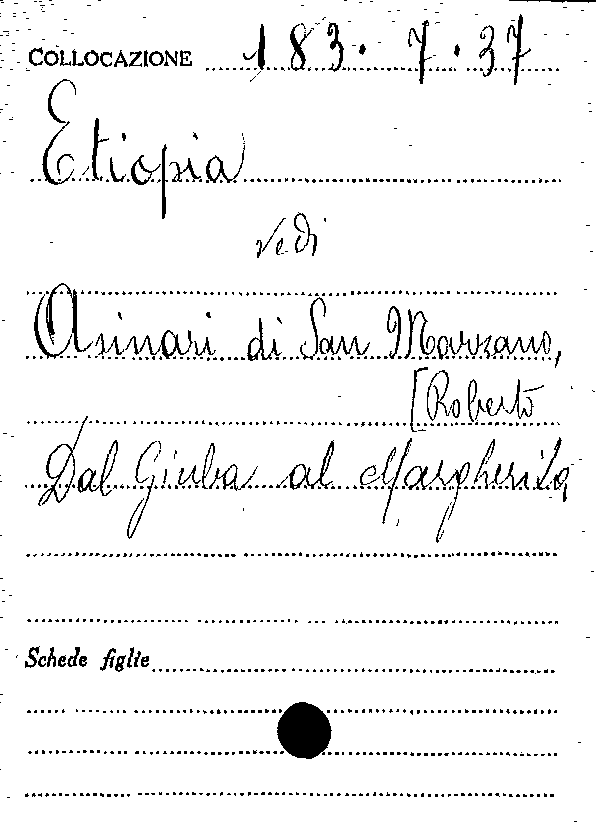 COLLOCAZIONE 183.7.37
Etiopia
vedi
Asinari di San Marzano,
[Roberto
Dal Giuba al Margherita
Schede figlie